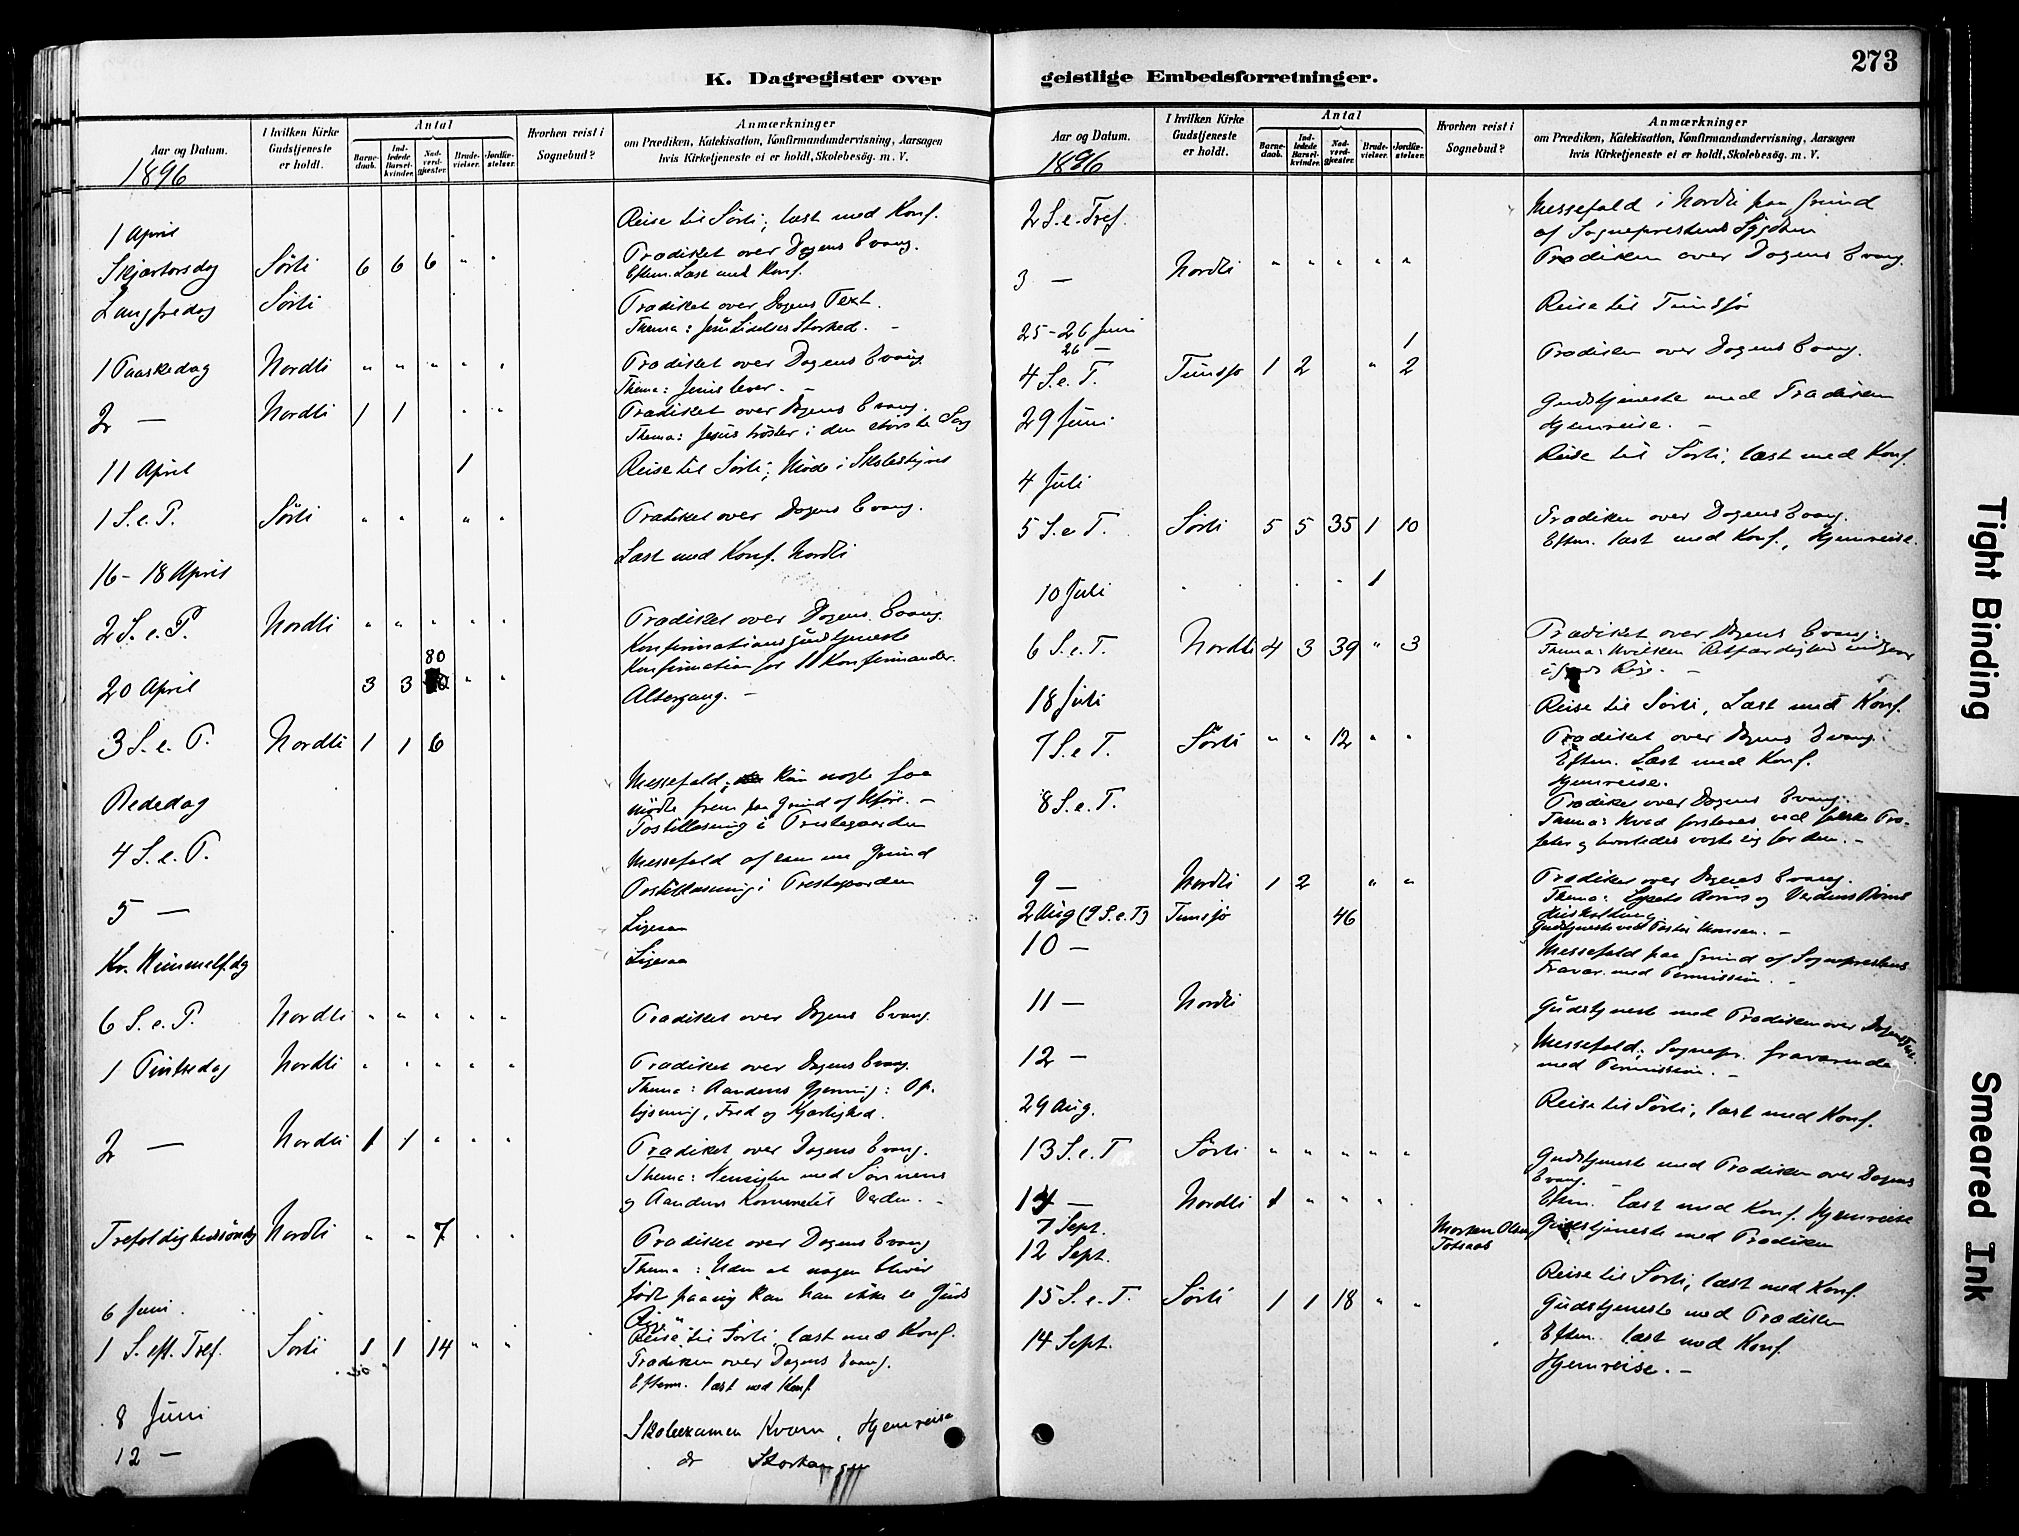 K. Dagregister over
Aar og Datum.
1896
I hvilken Kirke Gudstjeneste er holdt.
Antal
Barnedaab.
Indledede Barselkvinder.
Nadverdgjester.
Brudevielser.
Jordfæstelser.
Hvorhen reist i Sognebud?
Anmærkninger
om Prædiken, Katekisation, Konfirmandundervisning, Aarsagen
hvis Kirketjeneste ei er holdt, Skolebesög. m. V.
1 April Reise til Sörli, læst med Konf.
Skjærtorsdag Sörli 6 6 6 " " Prædiket over Dagens Evang.
Efterm. Læst med Konf.
Langfredag Sörli Prædiket over Dagens Text.
Thema: Jesu Lidelses Storhed. –
1 Paaskedag Nordli " " " " " Prædiket over Dagens Evang.
Thema: Jesus lever. –
2 — Nordli 1 1 " " Prædiket over Dagens Evang.
Thema: Jesus tröster i den störste Sorg
11 April 1 Reise til Sörli; Möde i Skolestyret
1 S. e. P. Sörli " " " " Prædiket over Dagens Evang.
16–18 April Læst med Konf. Nordli
2 S. e. P. Nordli " " " " " Prædiket over Dagens Evang.
Konfirmationsgudstjeneste
20 April 3 3 80 " " Konfirmation for 11 Konfirmander.
Altergang. –
3 S. e. P. Nordli 1 1 6
Bededag Messefald; kun nogle faa
mödte frem paa Grund af Uföre. –
Postillæsning i Prestegaarden
4 S. e. P. Messefald af samme Grund
Postillæsning i Prestegaarden
5 — Ligesaa
Kr. Himmelf.dag Ligesaa
6 S. e. P. Nordli " " " " " Prædiket over Dagens Evang.
1 Pintsedag Nordli " " " " " Prædiket over Dagens Evang.
Thema: Aandens Gjerning: Oplysning, Fred og Kjærlighed.
2 — Nordli 1 1 " " " Prædiket over Dagens Evang.
Thema: Hensigten med Sönnens
og Aandens Komme til Verden. –
Trefoldighedssöndag Nordli " " 7 " " Prædiket over Dagens Evang
Thema: Uden at nogen bliver
födt paany kan han ikke se Guds
Rige"
6 Juni. Reise til Sörli, læst med Konf.
1 S. eft. Tref. Sörli 1 1 14 " " Prædiken over Dagens Evang.
Efterm. læst med Konf
8 Juni Skoleexamen Kvam, Hjemreise
12 — do

geistlige Embedsforretninger.
273
Aar og Datum.
1896
I hvilken Kirke Gudstjeneste er holdt.
Antal
Barnedaab.
Indledede Barselkvinder.
Nadverdgjester.
Brudevielser.
Jordfæstelser.
Hvorhen reist i Sognebud?
Anmærkninger
om Prædiken, Katekisation, Konfirmandundervisning, Aarsagen
hvis Kirketjeneste ei er holdt, Skolebesög. m. V.
2 S. e. Tref. Messefald i Nordli paa Grund
af Sogneprestens Sygdom
3 — Nordli " " " " " Prædiken over Dagens Evang.
25–26 Juni Reise til Tunsjö
26 — 1
4 S. e. T. Tunsjö 1 2 " 2 Prædiken over Dagens Evang.
29 Juni Gudstjeneste med Prædiken
Hjemreise. –
4 Juli Reise til Sörli, læst med Konf.
5 S. e. T. Sörli 5 5 35 1 10 Prædiken over Dagens Evang.
Efterm. læst med Konf., Hjemreise.
10 Juli 1
6 S. e. T. Nordli 4 3 39 " 3 Prædiket over Dagens Evang.:
Thema: Hvilken Retfærdighed
i Guds Rige. –
18 Juli Reise til Sörli, Læst med Konf.
7 S. e. T. Sörli " " 12 " " Prædiket over Dagens Evang.
Efterm. Læst med Konf.
Hjemreise.
8 S. e. T. Prædiket over Dagens Evang.
Thema: Hvad forstaaes ved falske Profeter og hvorledes vogte sig for dem. –
9 — Nordli 1 2 " " Prædiket over Dagens Evang.
Thema: Lysets Börns og Verdens Börns
2 Aug (9 S. e. T) Tunsjö 46 Gudstjeneste ved Pastor Monsen. –
10 — Messefald paa Grund af Sogneprestens
Fravær. med Permission. –
11 — Nordli Gudstjeneste med Prædiken over Dagens Text.
12 — Messefald; Sognepr. fraværende
med Permission. –
29 Aug. Reise til Sörli, læst med Konf.
13 S. e. T Sörli " " " " " Gudstjeneste med Prædiken over Dagens
Evang.
Efterm. læst med Konf. Hjemreise
14 — Nordli 1 " " " Gudstjeneste med Prædiken
7 Sept. Morten Olsen
Totsaas
12 Sept. Reise til Sörli, læst med Konf.
15 S. e. T. Sörli 1 1 18 " " Gudstjeneste med Prædiken
Efterm. læst med Konf.
14 Sept. Hjemreise. –
Tight Binding
Smeared Ink